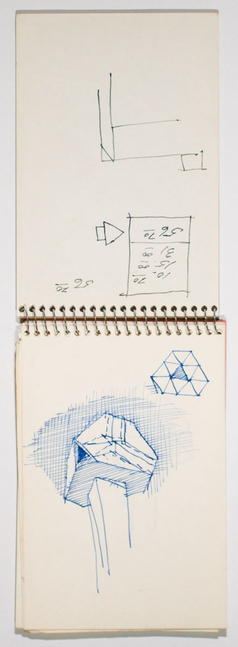 56 70
10. 70
15 00
31 00
56 70